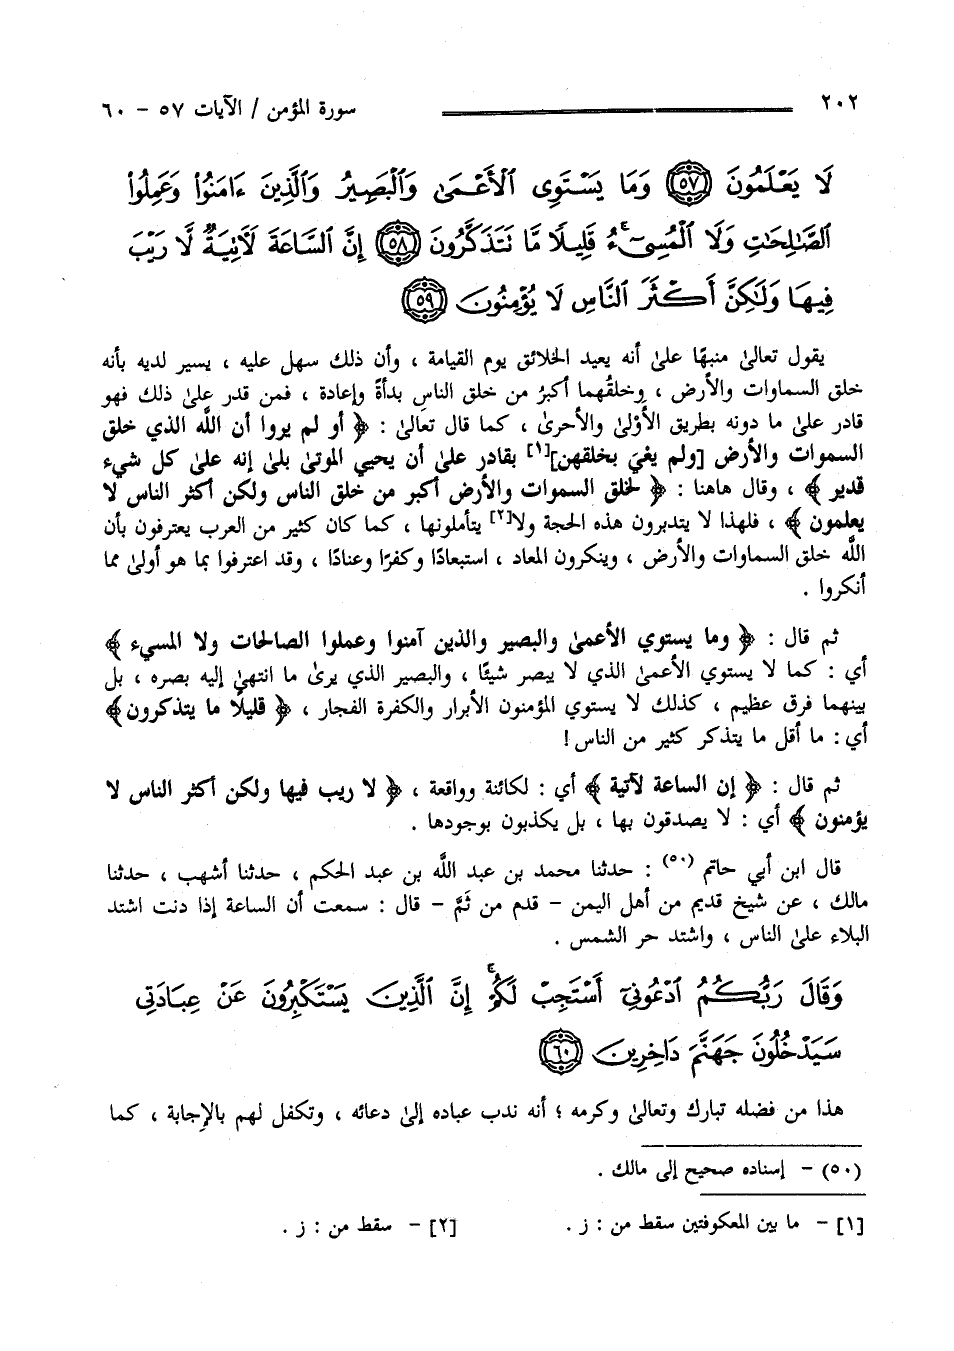 ٢٠٢ سورة المؤمن / الآيات ٥٧ - ٦٠
لَا يَعْلَمُونَ ٥٧ وَمَا يَسْتَوِى ٱلْأَعْمَىٰ وَٱلْبَصِيرُ وَٱلَّذِينَ ءَامَنُوا۟ وَعَمِلُوا۟
ٱلصَّـٰلِحَـٰتِ وَلَا ٱلْمُسِىٓءُ ۚ قَلِيلًا مَّا نَتَذَكَّرُونَ ٥٨ إِنَّ ٱلسَّاعَةَ لَـَٔاتِيَةٌ لَّا رَيْبَ
فِيهَا وَلَـٰكِنَّ أَكْثَرَ ٱلنَّاسِ لَا يُؤْمِنُونَ ٥٩
يقول تعالىٰ منبهًا علىٰ أنه يعيد الخلائق يوم القيامة ، وأن ذلك سهل عليه ، يسير لديه بأنه
خلق السماوات والأرض ، وخلقُهما أكبرُ من خلق الناسِ بدأةً وإعادة ، فمن قدر علىٰ ذلك فهو
قادر علىٰ ما دونه بطريق الأَوْلىٰ والأحرىٰ ، كما قال تعالىٰ : ﴿ أو لم يروا أن اللَّه الذي خلق
السموات والأرض [ولم يعْيَ بخلقهن][١] بقادر علىٰ أن يحيي الموتىٰ بلىٰ إنه علىٰ كل شيء
قدير ﴾ ، وقال هاهنا : ﴿ لخلق السموات والأرض أكبر من خلق الناس ولكن أكثر الناس لا
يعلمون ﴾ ، فلهذا لا يتدبرون هذه الحجة ولا[٢] يتأملونها ، كما كان كثير من العرب يعترفون بأن
اللَّه خلق السماوات والأرض ، وينكرون المعاد ، استبعادًا وكفرًا وعنادًا ، وقد اعترفوا بما هو أولىٰ مما
أنكروا .
ثم قال : ﴿ وما يستوي الأعمىٰ والبصير والذين آمنوا وعملوا الصالحات ولا المسيء ﴾
أي : كما لا يستوي الأعمىٰ الذي لا يبصر شيئًا ، والبصير الذي يرىٰ ما انتهىٰ إليه بصره ، بل
بينهما فرق عظيم ، كذلك لا يستوي المؤمنون الأبرار والكفرة الفجار ، ﴿ قليلًا ما يتذكرون ﴾
أي : ما أقل ما يتذكر كثير من الناس !
ثم قال : ﴿ إن الساعة لآتية ﴾ أي : لكائنة وواقعة ، ﴿ لا ريب فيها ولكن أكثر الناس لا
يؤمنون ﴾ أي : لا يصدقون بها ، بل يكذبون بوجودها .
قال ابن أبي حاتم (٥٠) : حدثنا محمد بن عبد اللَّه بن عبد الحكم ، حدثنا أشهب ، حدثنا
مالك ، عن شيخ قديم من أهل اليمن - قدم من ثَمَّ - قال : سمعت أن الساعة إذا دنت اشتد
البلاء علىٰ الناس ، واشتد حر الشمس .
وَقَالَ رَبُّكُمُ ٱدْعُونِىٓ أَسْتَجِبْ لَكُمْ ۚ إِنَّ ٱلَّذِينَ يَسْتَكْبِرُونَ عَنْ عِبَادَتِى
سَيَدْخُلُونَ جَهَنَّمَ دَاخِرِينَ ٦٠
هذا من فضله تبارك وتعالىٰ وكرمه ؛ أنه ندب عباده إلىٰ دعائه ، وتكفل لهم بالإِجابة ، كما
(٥٠) - إسناده صحيح إلى مالك .
[١] - ما بين المعكوفتين سقط من : ز . [٢] - سقط من : ز .